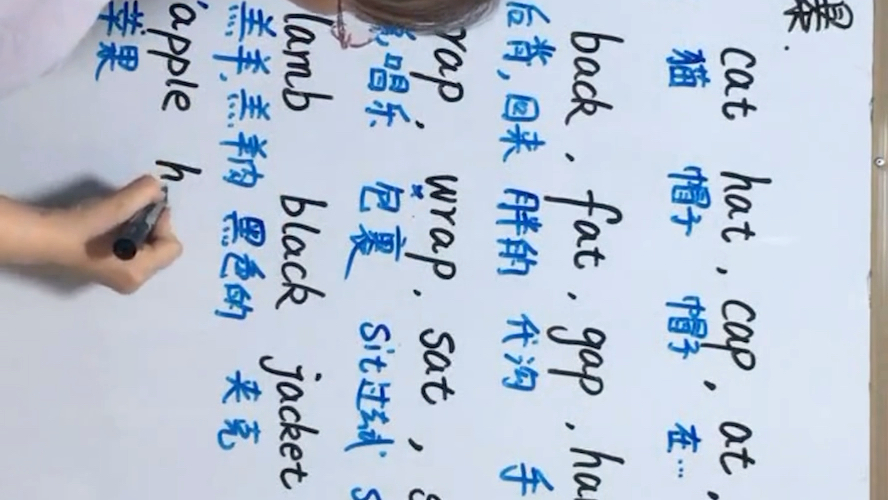 cat hat, cap, at,
猫 帽子 帽子 在...
back, fat, gap,
后背,回来 胖的 代沟 手
rap, wrap, sat,
说唱乐 包裹 sit过去式
lamb black jacket
羔羊,羔羊肉 黑色的 夹克
apple h
苹果